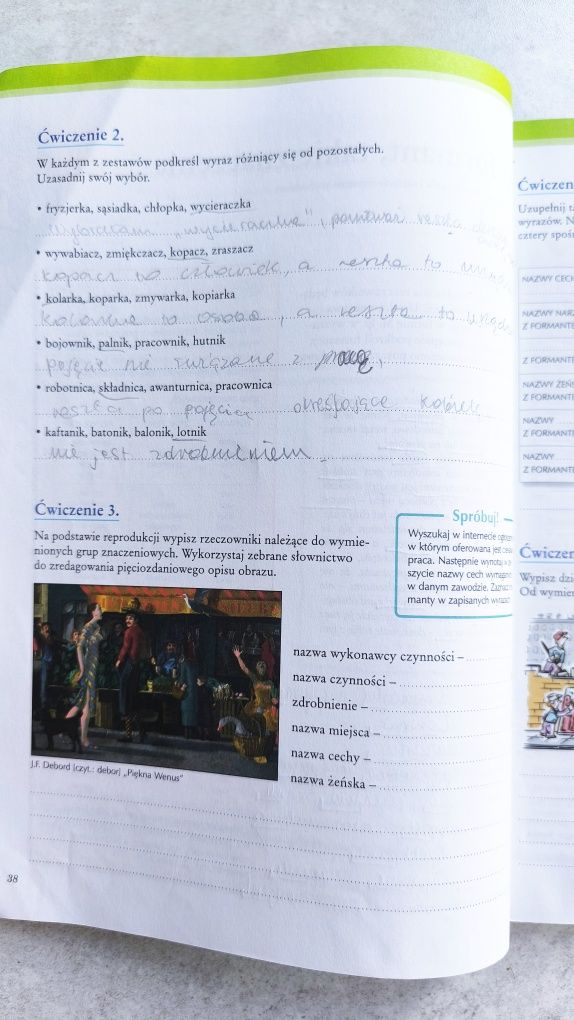 Ćwiczenie 2.
W każdym z zestawów podkreśl wyraz różniący się od pozostałych.
Uzasadnij swój wybór.
• fryzjerka, sąsiadka, chłopka, wycieraczka
Wybieram „wycieraczka", ponieważ reszta
• wywabiacz, zmiękczacz, kopacz, zraszacz
kopacz to człowiek, a reszta to
• kolarka, koparka, zmywarka, kopiarka
Kolarka to osoba, a reszta to
• bojownik, palnik, pracownik, hutnik
pojęcie nie związane z pracą,
• robotnica, składnica, awanturnica, pracownica
reszta to pojęcia określające kobietę
• kaftanik, batonik, balonik, lotnik
nie jest zdrobnieniem.
Ćwiczenie 3.
Na podstawie reprodukcji wypisz rzeczowniki należące do wymie-
nionych grup znaczeniowych. Wykorzystaj zebrane słownictwo
do zredagowania pięciozdaniowego opisu obrazu.
Spróbuj!
Wyszukaj w internecie
w którym oferowana jest
praca. Następnie wynotuj w
szycie nazwy cech
w danym zawodzie.
manty w zapisanych wyrazach
nazwa wykonawcy czynności –
nazwa czynności –
zdrobnienie –
nazwa miejsca –
nazwa cechy –
nazwa żeńska –
J.F. Debord [czyt.: debor] „Piękna Wenus"
38
Ćwiczen
Uzupełnij t
wyrazów. N
cztery spoś
NAZWY CECH
NAZWY NARZ
Z FORMANTE
Z FORMANTE
NAZWY ŻEŃS
Z FORMANTE
NAZWY
Z FORMANTE
NAZWY
Z FORMANTE
Ćwiczen
Wypisz dzi
Od wymie